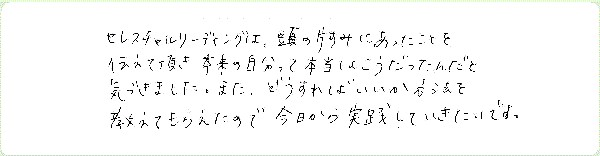 セレスチャルリーディングは、頭の片すみにあったことを
伝えて頂き 本来の自分って本当はこうだったんだと
気づきました。また、どうすればいいか方法を
教えてもらえたので 今日から実践していきたいです。